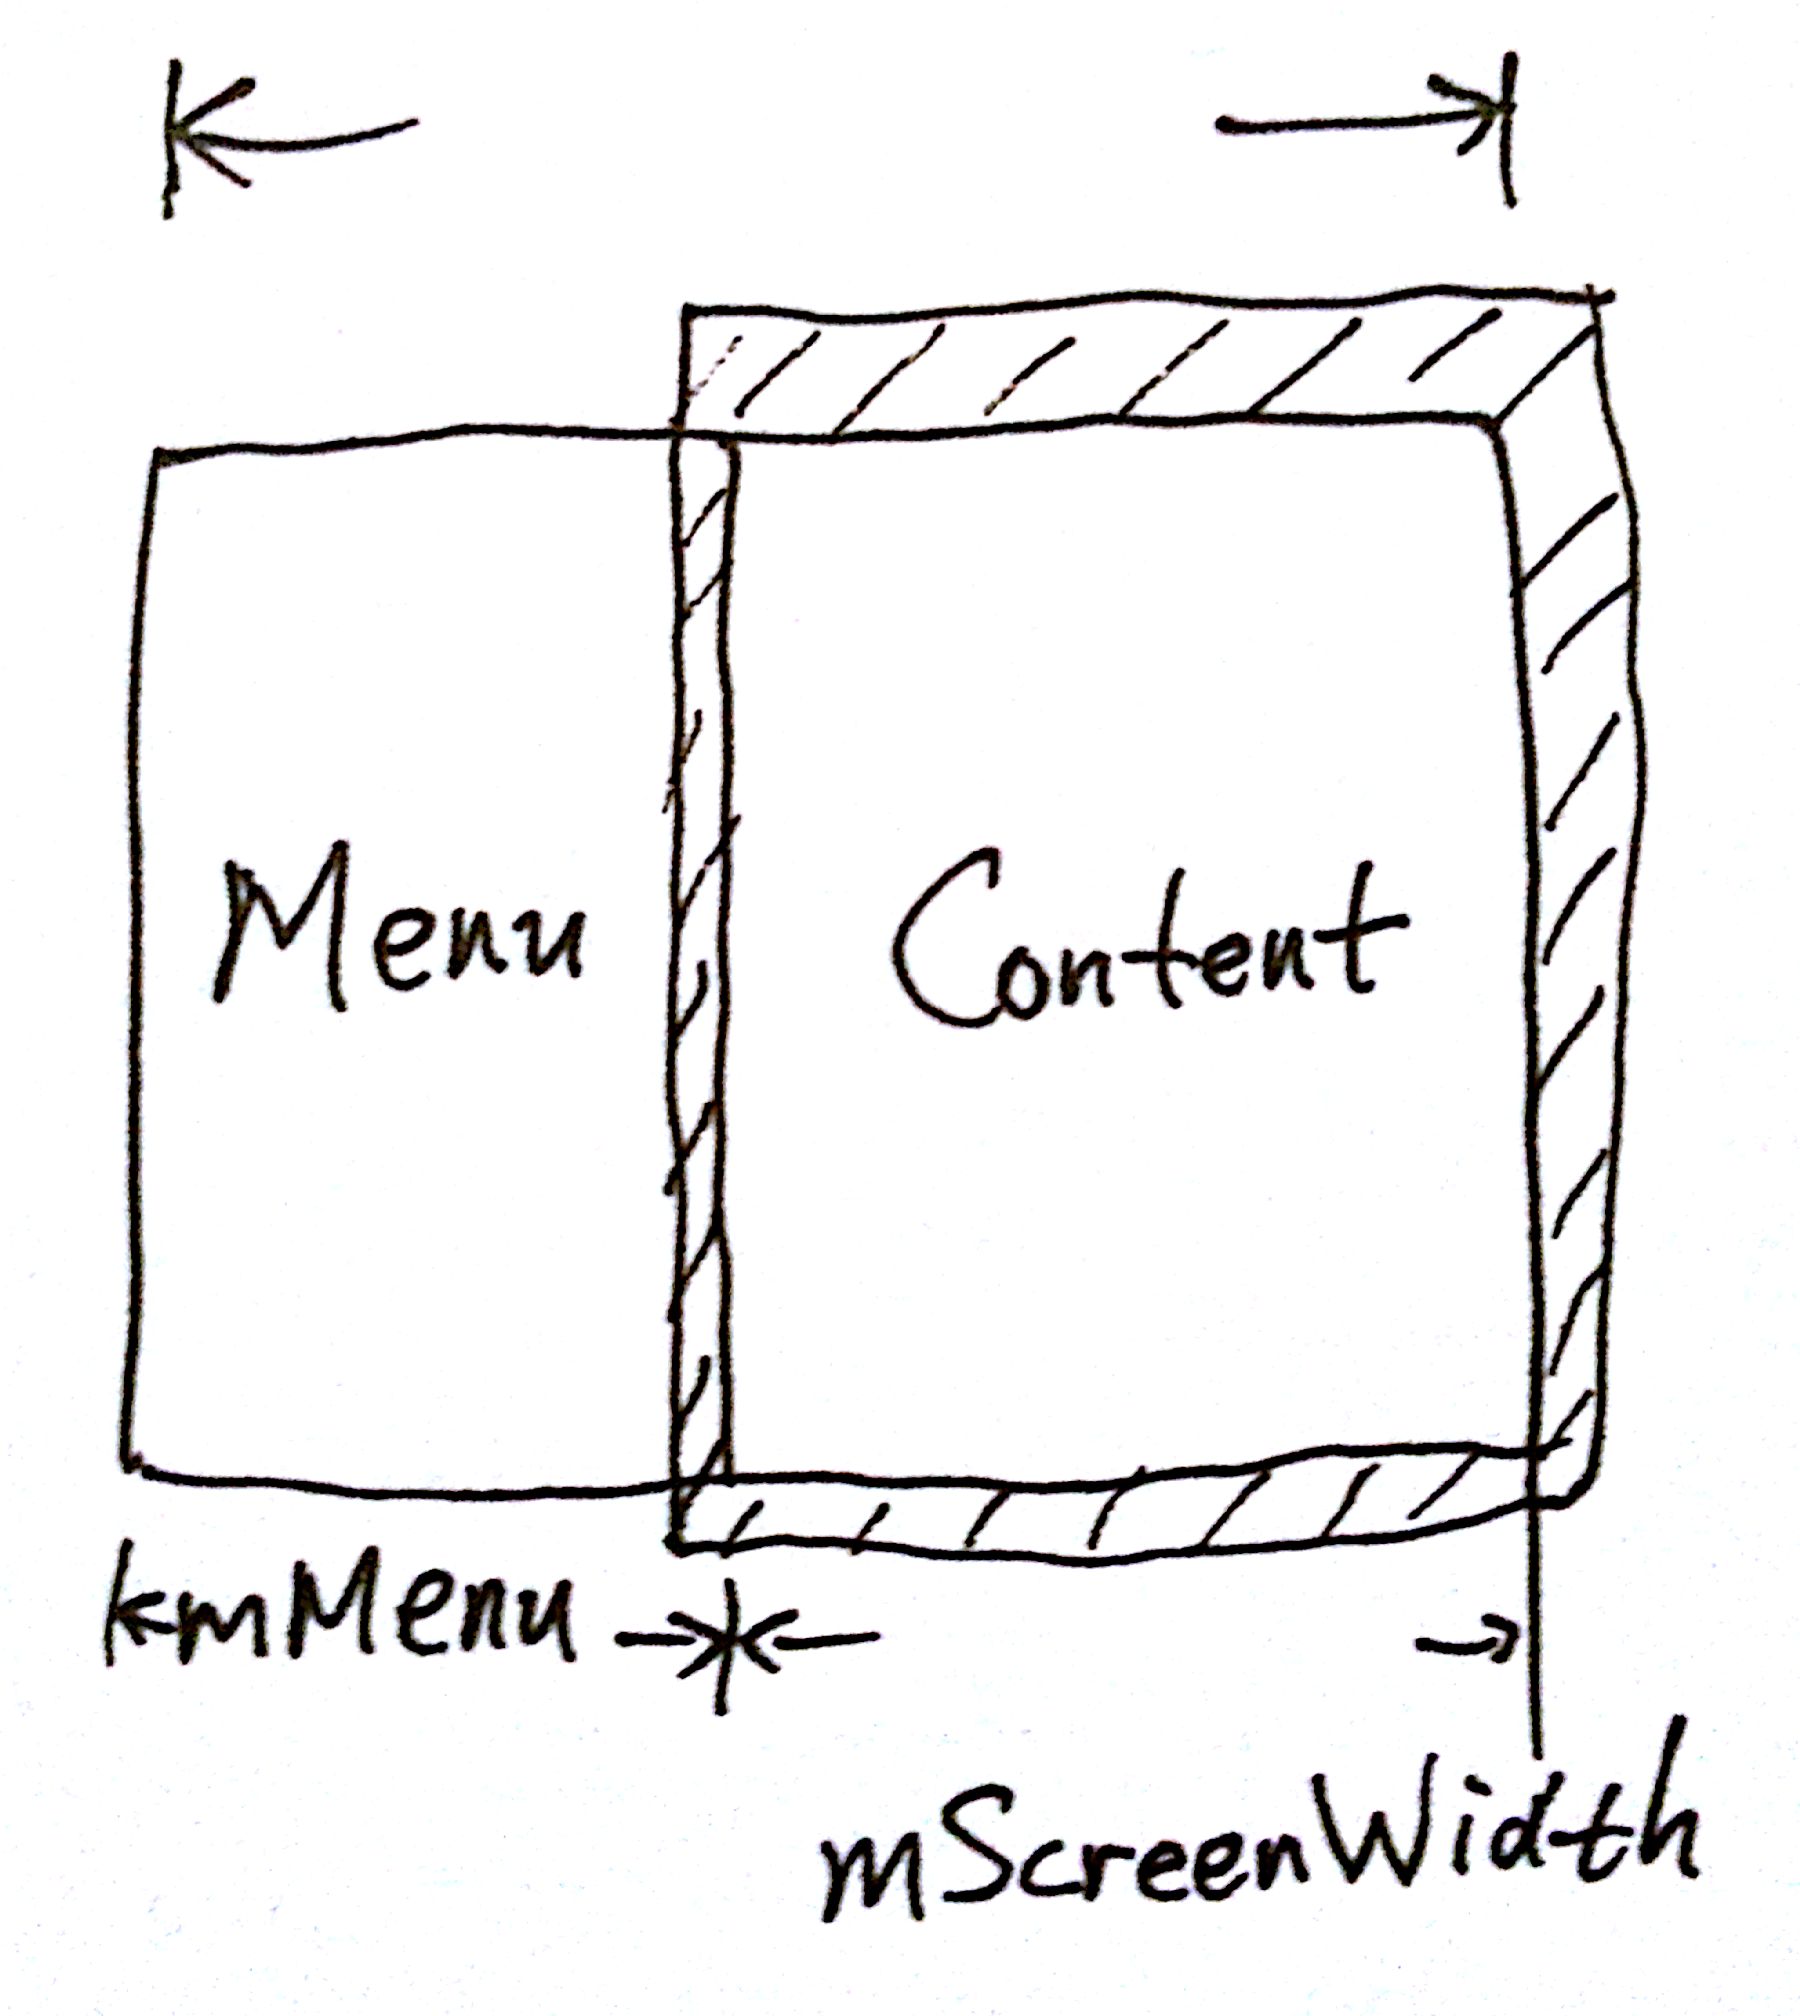 Menu
Content
kmMenu
mScreenWidth